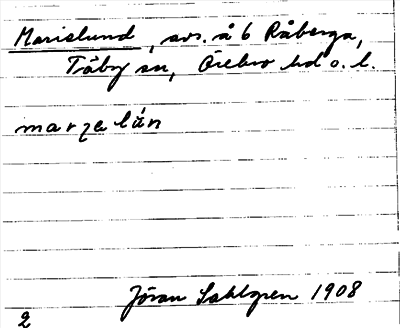 Marislund, avs. å 6 Råberga,
Täby sn, Örebro hd o. l.
Jöran Sahlgren 1908
2